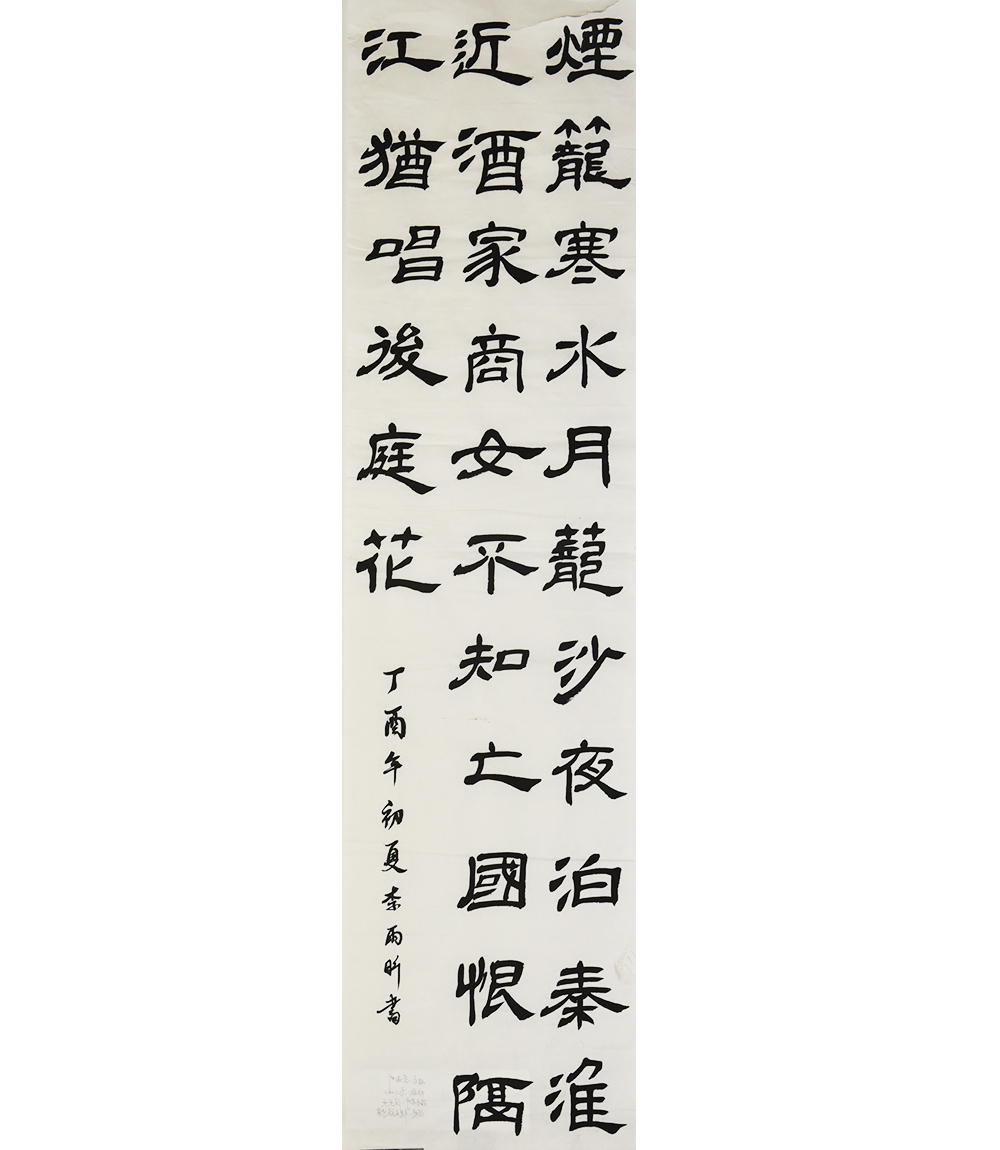 煙籠寒水月籠沙夜泊秦淮
近酒家商女不知亡國恨隔
江猶唱後庭花
丁酉年初夏李雨昕書